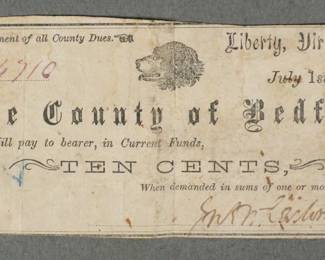 ment of all County Dues.
Liberty, Vir
4710
July 1st
e County of Bedf
ill pay to bearer, in Current Funds,
TEN CENTS,
When demanded in sums of one or mo